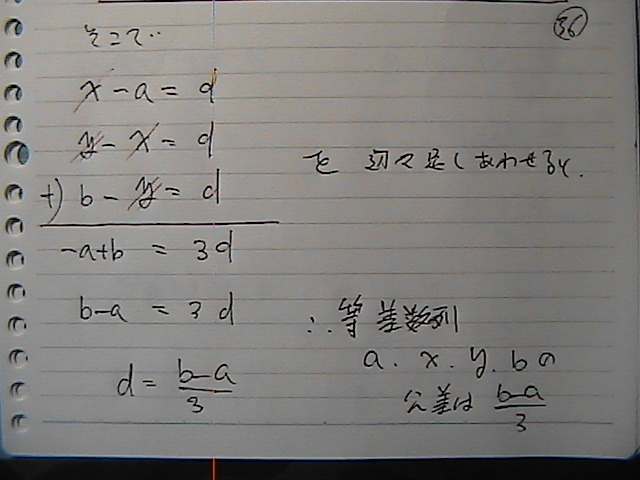 36
そこで‥
x - a = d
y - x = d
を 辺々足しあわせると.
+) b - y = d
-a+b = 3d
b-a = 3d
∴等差数列
a. x. y. b の
d = b-a/3
公差は b-a/3